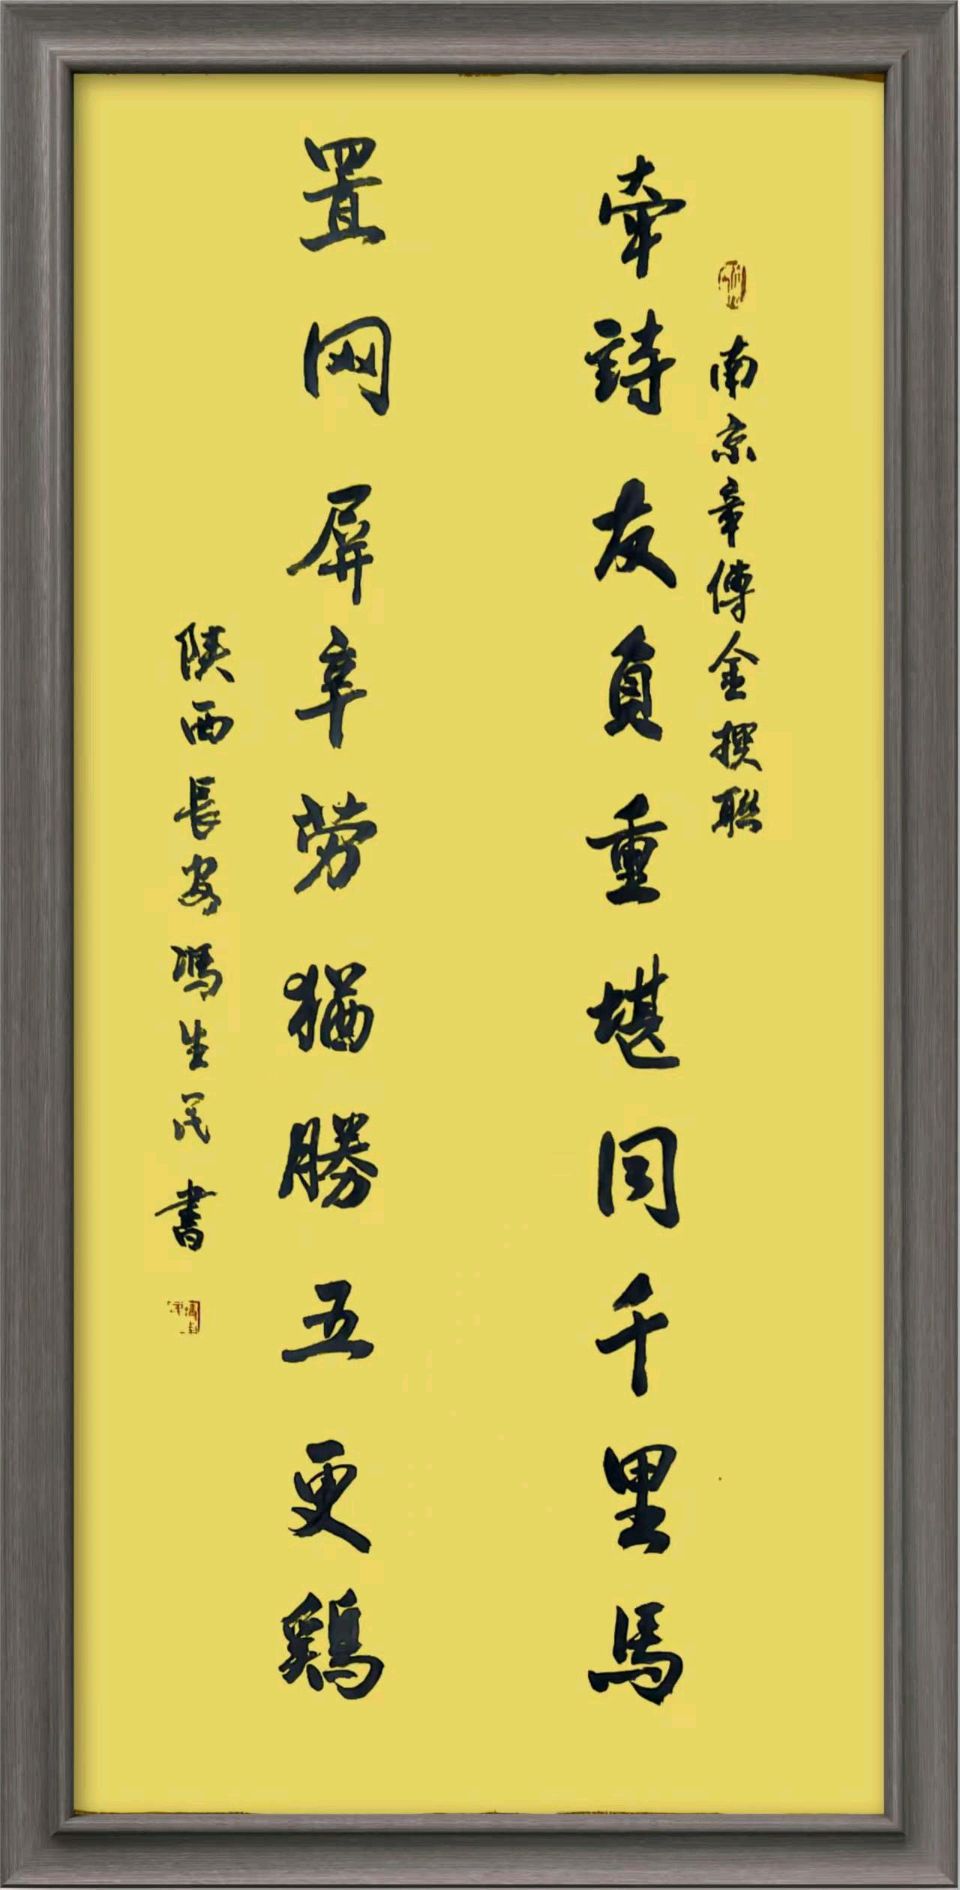 南京章傳金撰联
牵詩友負重堪同千里馬
置网屏辛劳猶勝五更鷄
陕西長安馮生民書